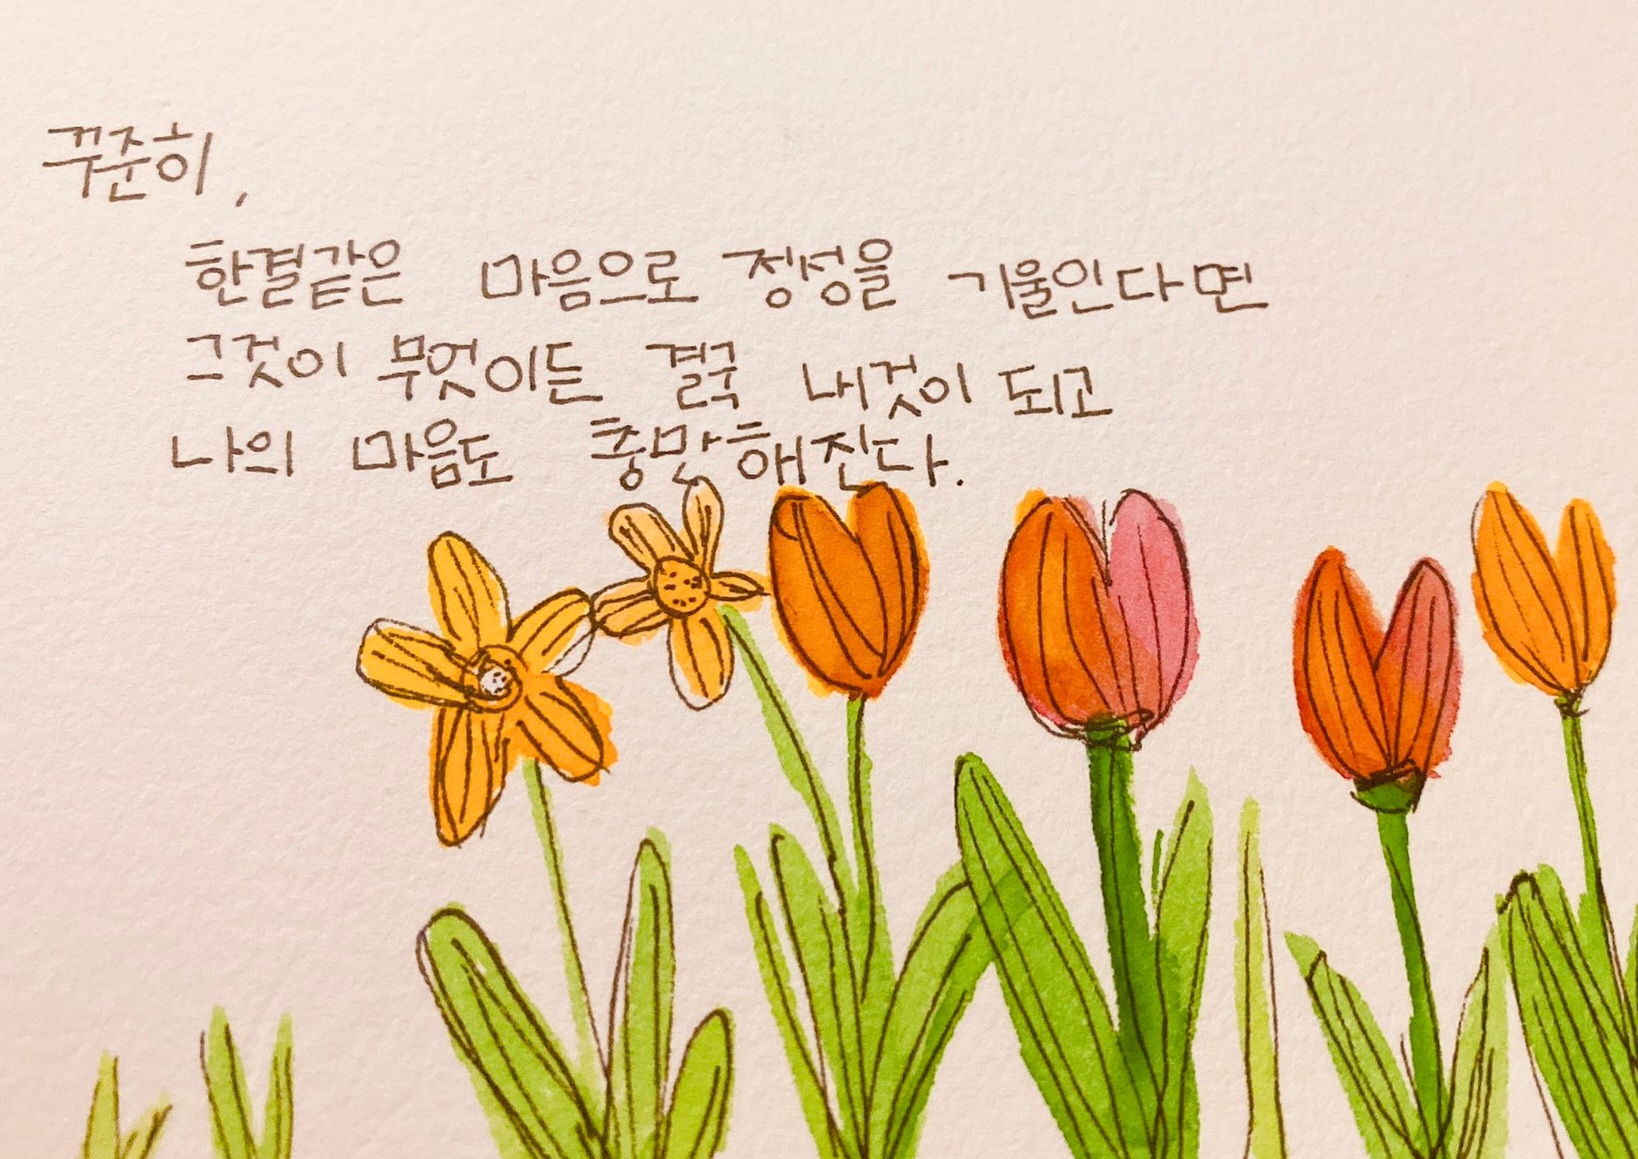 꾸준히,
한결같은 마음으로 정성을 기울인다면
그것이 무엇이든 결국 내것이 되고
나의 마음도 충만해진다.